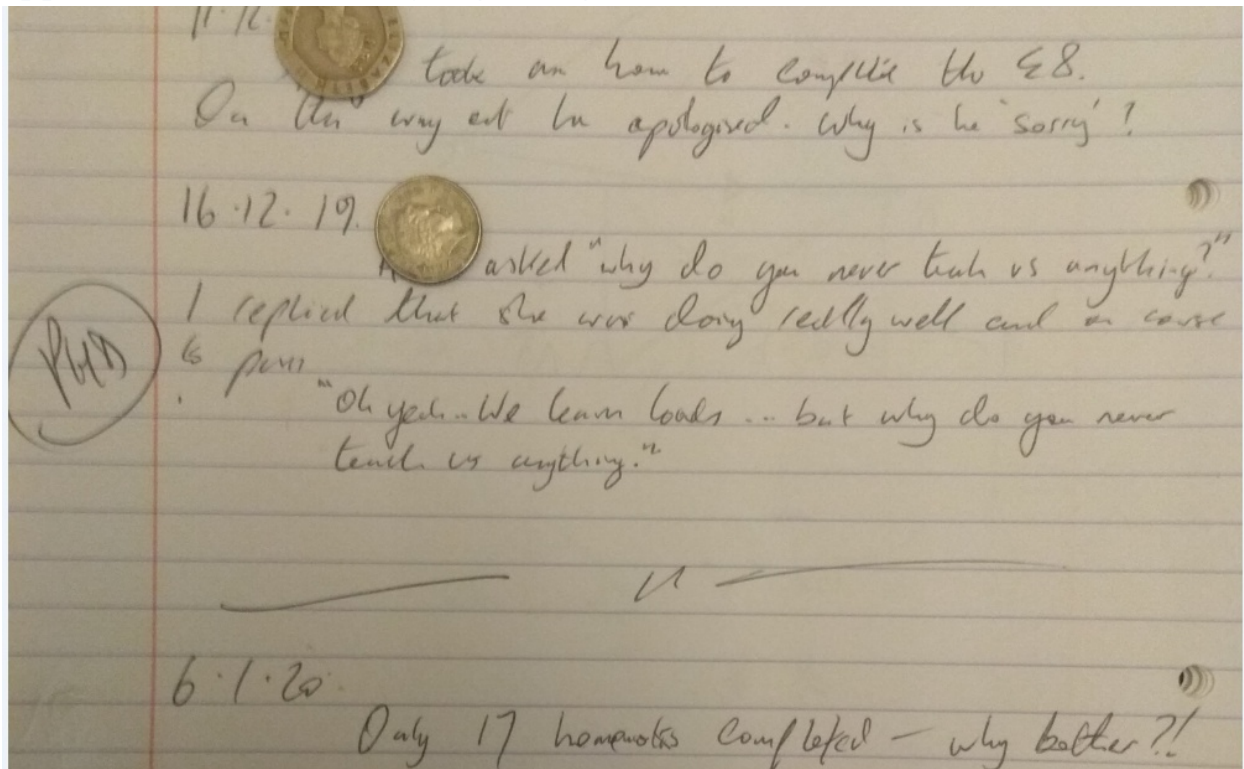 11.12.
took an hour to complete the E8.
On the way out he apologised. Why is he 'sorry'?
16.12.19.
asked "why do you never teach us anything?"
I replied that she was doing really well and on course
PHD
to pass
"Oh yeah.. We learn loads ... but why do you never
teach us anything."
6.1.20.
Only 17 homeworks completed - why bother?!